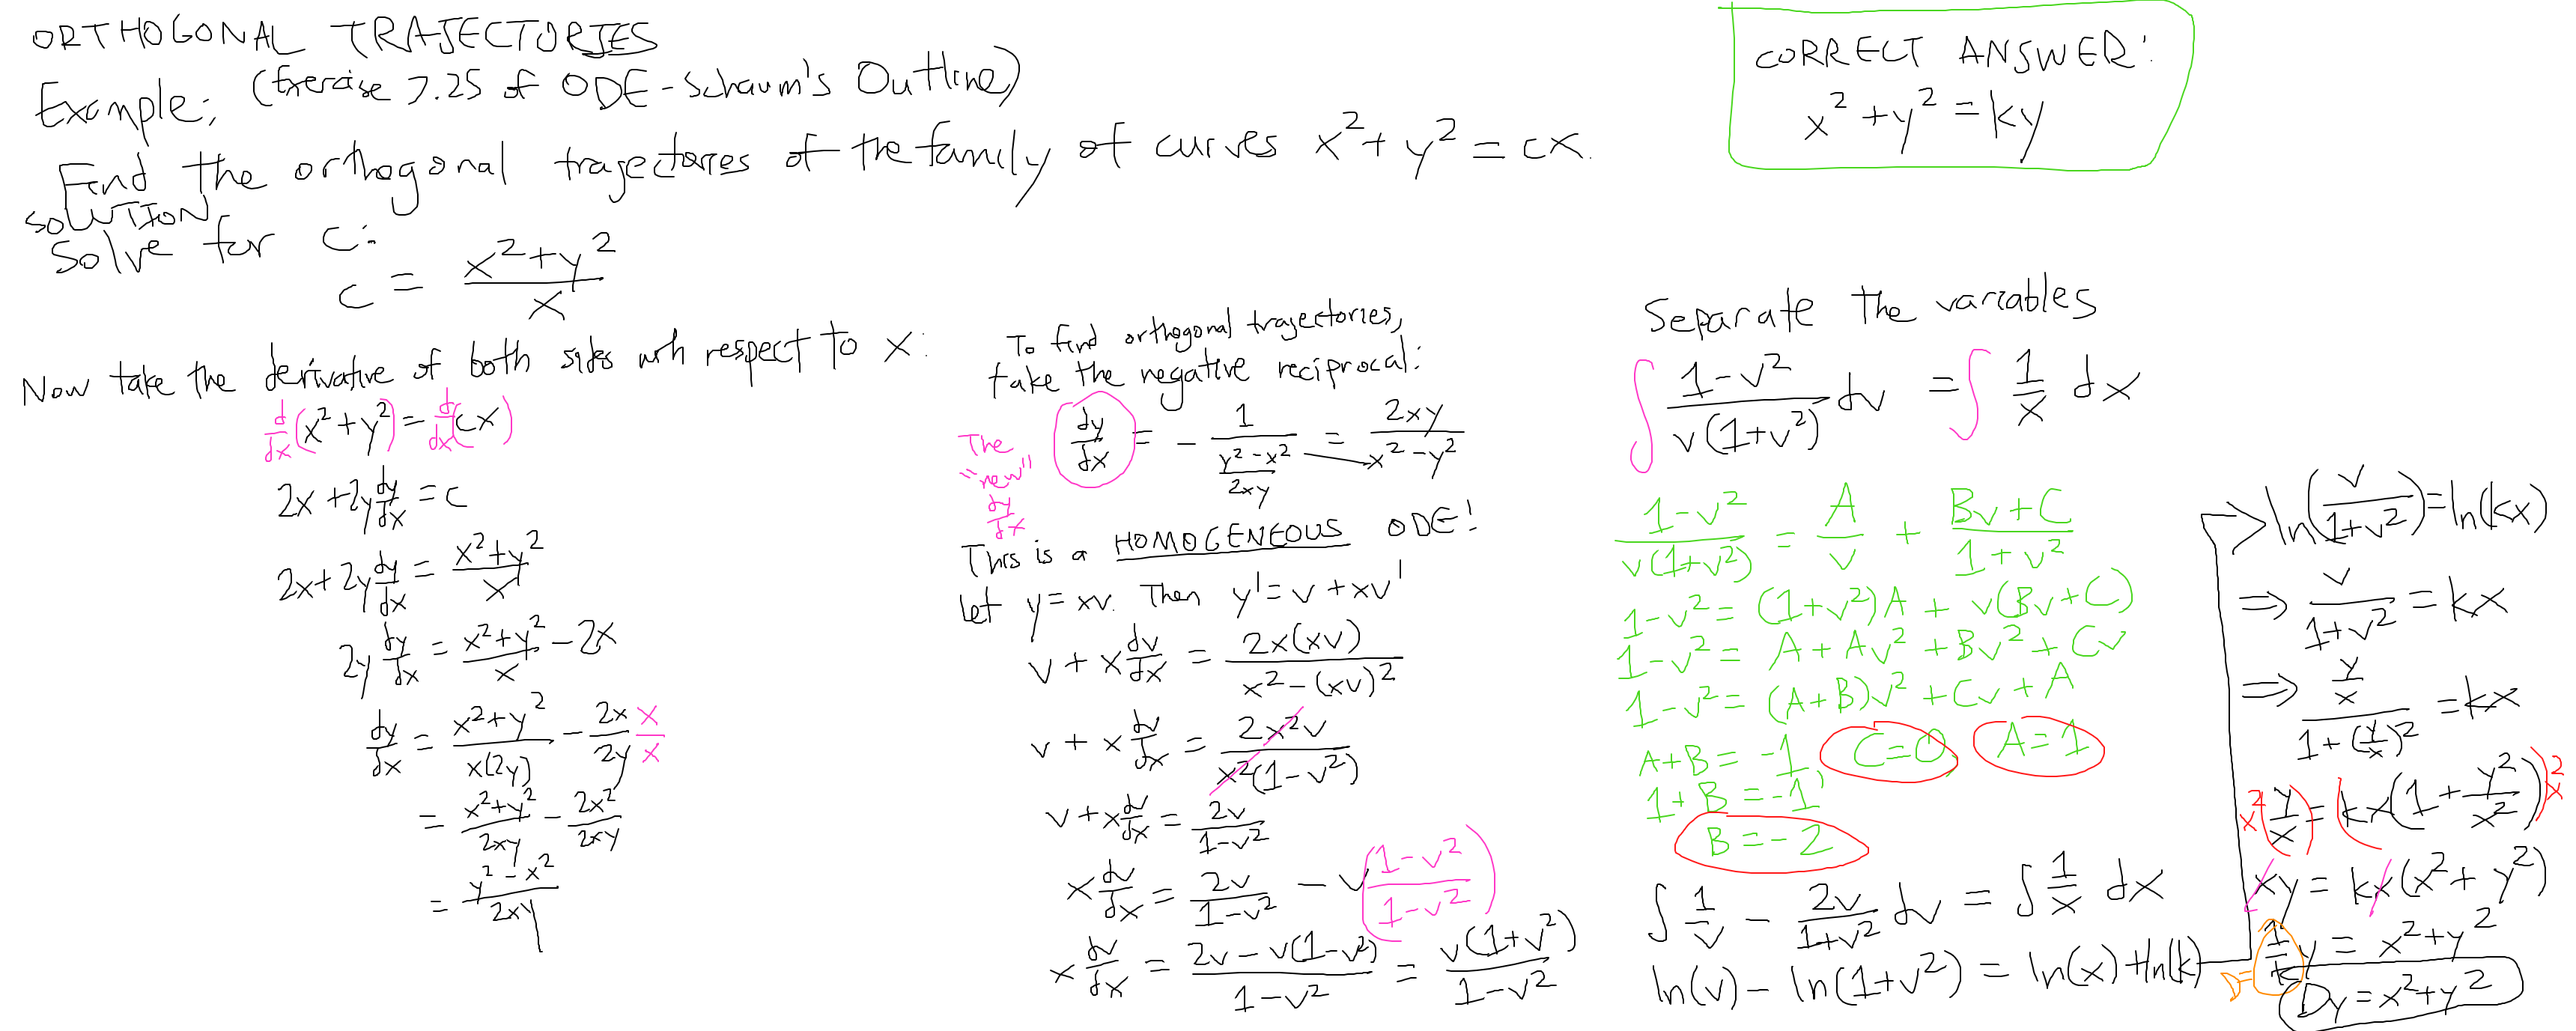 ORTHOGONAL TRAJECTORIES
Example: (Exercise 7.25 of ODE - Schaum's Outline)
Find the orthogonal trajectories of the family of curves x² + y² = cx.
SOLUTION
Solve for c:
c = (x²+y²)/x
Now take the derivative of both sides with respect to x:
d/dx(x² + y²) = d/dx(cx)
2x + 2y dy/dx = c
2x + 2y dy/dx = (x²+y²)/x
2y dy/dx = (x²+y²)/x - 2x
dy/dx = (x²+y²)/(x(2y)) - 2x/2y x/x
= (x²+y²)/2xy - 2x²/2xy
= (y²-x²)/2xy
To find orthogonal trajectories,
take the negative reciprocal:
The "new" dy/dx
dy/dx = - 1/((y²-x²)/2xy) = 2xy/(x²-y²)
This is a HOMOGENEOUS ODE!
Let y = xv. Then y' = v + xv'
v + x dv/dx = 2x(xv)/(x²-(xv)²)
v + x dv/dx = 2x²v/(x²(1-v²))
v + x dv/dx = 2v/(1-v²)
x dv/dx = 2v/(1-v²) - v((1-v²)/(1-v²))
x dv/dx = (2v-v(1-v²))/(1-v²) = v(1+v²)/(1-v²)
CORRECT ANSWER:
x² + y² = ky
Separate the variables
∫ (1-v²)/(v(1+v²)) dv = ∫ 1/x dx
(1-v²)/(v(1+v²)) = A/v + (Bv+C)/(1+v²)
1-v² = (1+v²)A + v(Bv+C)
1-v² = A + Av² + Bv² + Cv
1-v² = (A+B)v² + Cv + A
A+B = -1, C=0, A=1
1+B = -1
B = -2
∫ 1/v - 2v/(1+v²) dv = ∫ 1/x dx
ln(v) - ln(1+v²) = ln(x) + ln(k)
ln(v/(1+v²)) = ln(kx)
⇒ v/(1+v²) = kx
⇒ (y/x)/(1+(y/x)²) = kx
x²(y/x) = (kx(1+y²/x²))x²
xy = kx(x²+y²)
1/k y = x²+y²
D=
Dy = x²+y²